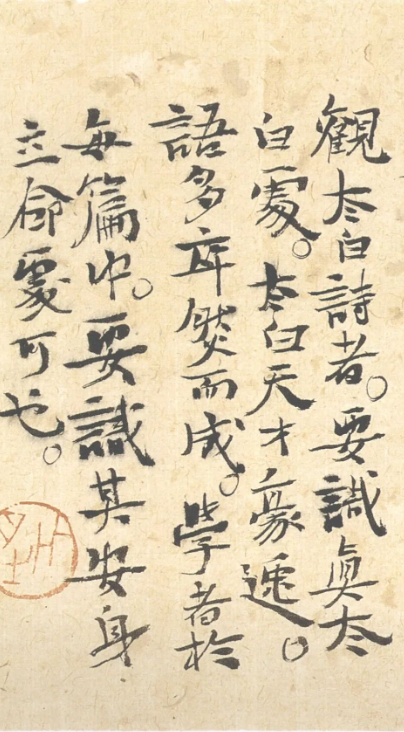 觀太白詩者。要識眞太
白處。太白天才豪逸。
語多卒然而成。學者於
每篇中。要識其安身
立命處可也。